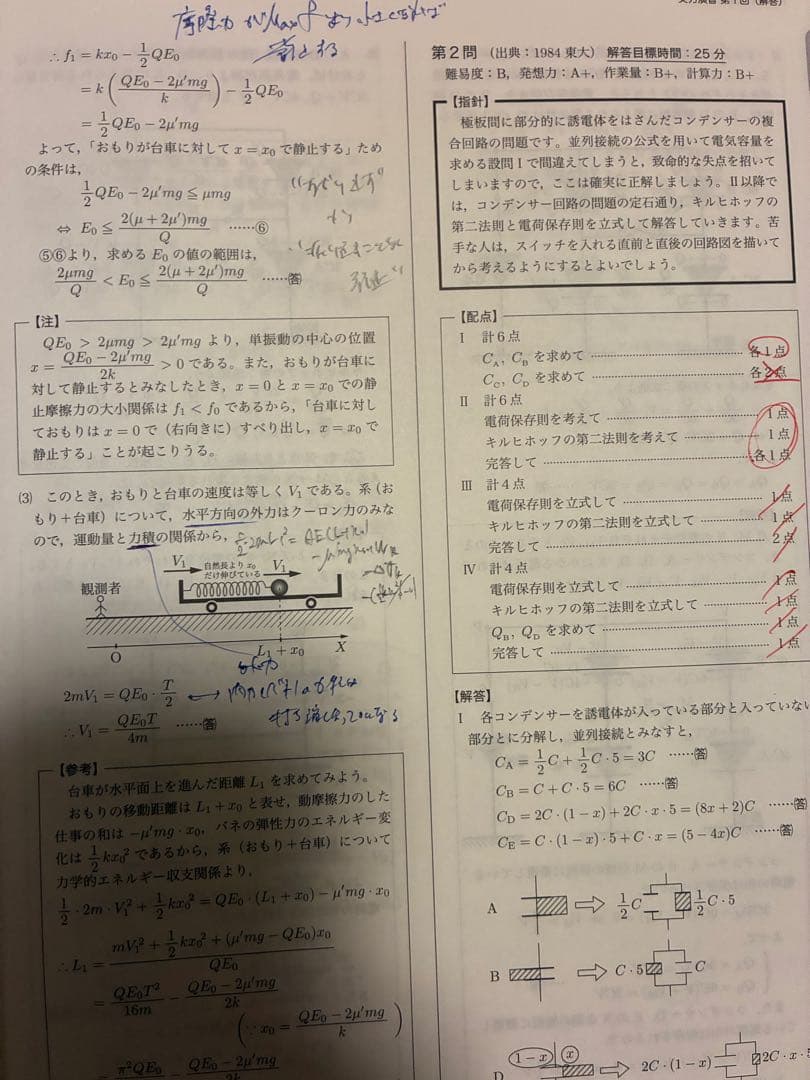 摩擦力が
∴ f₁ = kx₀ − 1/2 QE₀
= k( (QE₀ − 2μ′mg)/k ) − 1/2 QE₀
= 1/2 QE₀ − 2μ′mg
よって，「おもりが台車に対して x = x₀ で静止する」ため
の条件は，
1/2 QE₀ − 2μ′mg ≦ μmg
⇔ E₀ ≦ 2(μ + 2μ′)mg/Q ……⑥
⑤⑥より，求める E₀ の値の範囲は，
2μmg/Q < E₀ ≦ 2(μ + 2μ′)mg/Q ……答
【注】
QE₀ > 2μmg > 2μ′mg より，単振動の中心の位置
x = (QE₀ − 2μ′mg)/2k > 0 である。また，おもりが台車に
対して静止するとみなしたとき，x = 0 と x = x₀ での静
止摩擦力の大小関係は f₁ < f₀ であるから，「台車に対し
ておもりは x = 0 で（右向きに）すべり出し，x = x₀ で
静止する」ことが起こりうる。
(3) このとき，おもりと台車の速度は等しく V₁ である。系（お
もり＋台車）について，水平方向の外力はクーロン力のみな
ので，運動量と力積の関係から，
V₁ 自然長より x₀ だけ伸びている V₁
観測者
O L₁ + x₀ X
2mV₁ = QE₀ · T/2
∴ V₁ = QE₀T/4m ……答
【参考】
台車が水平面上を進んだ距離 L₁ を求めてみよう。
おもりの移動距離は L₁ + x₀ と表せ，動摩擦力のした
仕事の和は −μ′mg · x₀，バネの弾性力のエネルギー変
化は 1/2 kx₀² であるから，系（おもり＋台車）について
力学的エネルギー収支関係より，
1/2 · 2m · V₁² + 1/2 kx₀² = QE₀ · (L₁ + x₀) − μ′mg · x₀
∴ L₁ = (mV₁² + 1/2 kx₀² + (μ′mg − QE₀)x₀)/QE₀
= QE₀T²/16m − (QE₀ − 2μ′mg)/2k
(∵ x₀ = (QE₀ − 2μ′mg)/k)
π²QE₀ − QE₀ − 2μ′mg
第1回（解答）
第2問 （出典：1984 東大） 解答目標時間：25分
難易度：B，発想力：A+，作業量：B+，計算力：B+
【指針】
極板間に部分的に誘電体をはさんだコンデンサーの複
合回路の問題です。並列接続の公式を用いて電気容量を
求める設問Ⅰで間違えてしまうと，致命的な失点を招いて
しまいますので，ここは確実に正解しましょう。Ⅱ以降で
は，コンデンサー回路の問題の定石通り，キルヒホッフの
第二法則と電荷保存則を立式して解答していきます。苦
手な人は，スイッチを入れる直前と直後の回路図を描いて
から考えるようにするとよいでしょう。
【配点】
Ⅰ 計6点
C_A，C_B を求めて ……… 各1点
C_C，C_D を求めて ……… 各2点
Ⅱ 計6点
電荷保存則を考えて ……… 1点
キルヒホッフの第二法則を考えて ……… 1点
完答して ……… 各1点
Ⅲ 計4点
電荷保存則を立式して ……… 1点
キルヒホッフの第二法則を立式して ……… 1点
完答して ……… 2点
Ⅳ 計4点
電荷保存則を立式して ……… 1点
キルヒホッフの第二法則を立式して ……… 1点
Q_B，Q_D を求めて ……… 1点
完答して ……… 1点
【解答】
Ⅰ 各コンデンサーを誘電体が入っている部分と入っていない
部分とに分解し，並列接続とみなすと，
C_A = 1/2 C + 1/2 C · 5 = 3C ……答
C_B = C + C · 5 = 6C ……答
C_D = 2C · (1 − x) + 2C · x · 5 = (8x + 2)C ……答
C_E = C · (1 − x) · 5 + C · x = (5 − 4x)C ……答
A 1/2 C 1/2 C · 5
B C · 5 C
D 1−x x 2C · (1−x) 2C · x · 5